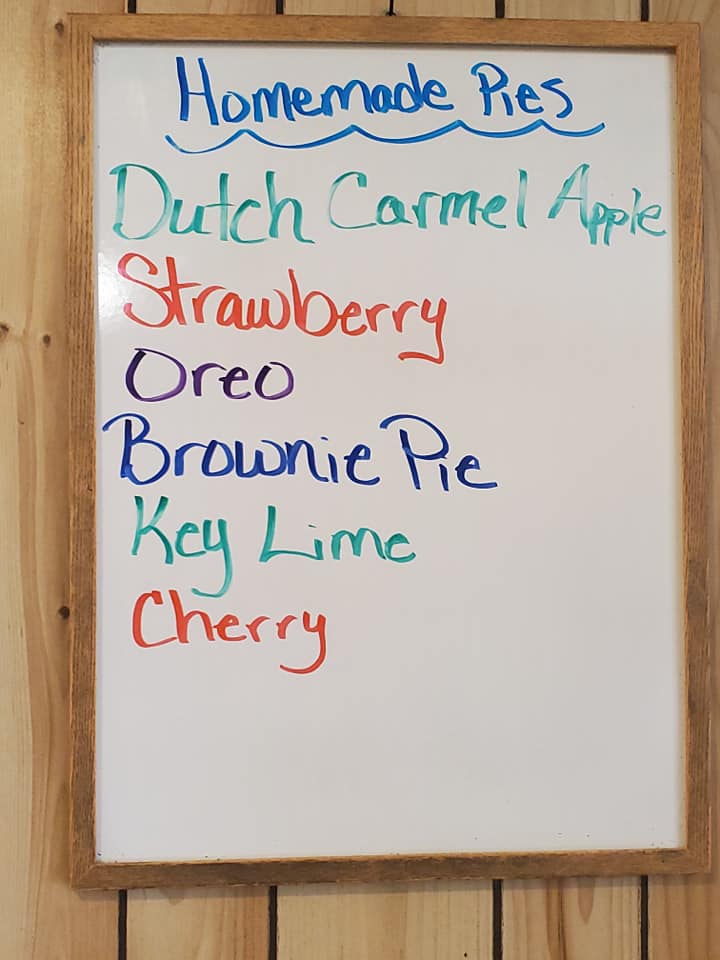 Homemade Pies
Dutch Carmel Apple
Strawberry
Oreo
Brownie Pie
Key Lime
Cherry